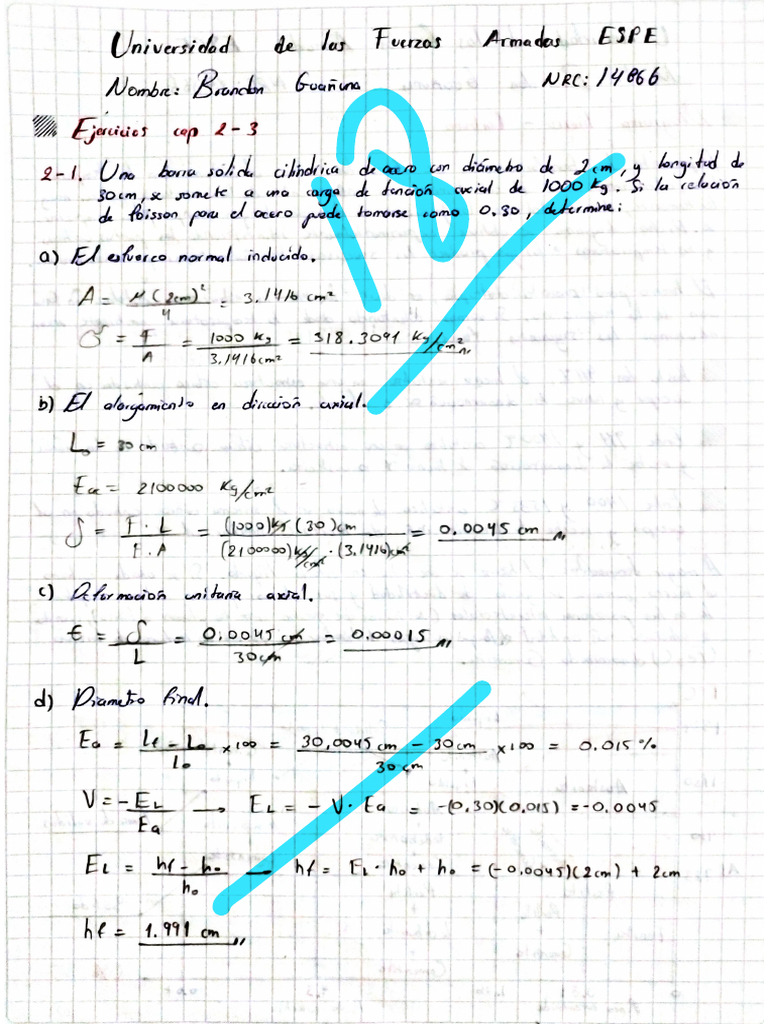 Universidad de las Fuerzas Armadas ESPE
Nombre: Brandon Guañuna NRC: 14866
Ejercicios cap 2-3
18
2-1. Una barra sólida cilíndrica de acero con diámetro de 2cm, y longitud de
30cm, se somete a una carga de tanción axial de 1000 Kg. Si la relución
de Poisson para el acero puede tomarse como 0.30, determine:
a) El esfuerco normal inducido.
A = π(2cm)²/4 = 3.1416 cm²
σ = F/A = 1000 Kg/3.1416cm² = 318.3091 Kg/cm²
b) El alargamiento en dirección axial.
L₀ = 30 cm
Eac = 2100000 Kg/cm²
δ = F·L/E·A = (1000)kg (30)cm/(2100000)kg/cm² · (3.1416)cm² = 0.0045 cm
c) Deformación unitaria axial.
ε = δ/L = 0.0045 cm/30cm = 0.00015
d) Diametro final.
Ea = Lf - L₀/L₀ ×100 = 30,0045 cm - 30cm/30 cm ×100 = 0.015 %
V = -EL/Ea → EL = - V· Ea = -(0.30)(0,015) = -0.0045
EL = hf - h₀/h₀ → hf = EL · h₀ + h₀ = (-0,0045)(2cm) + 2cm
hf = 1.991 cm